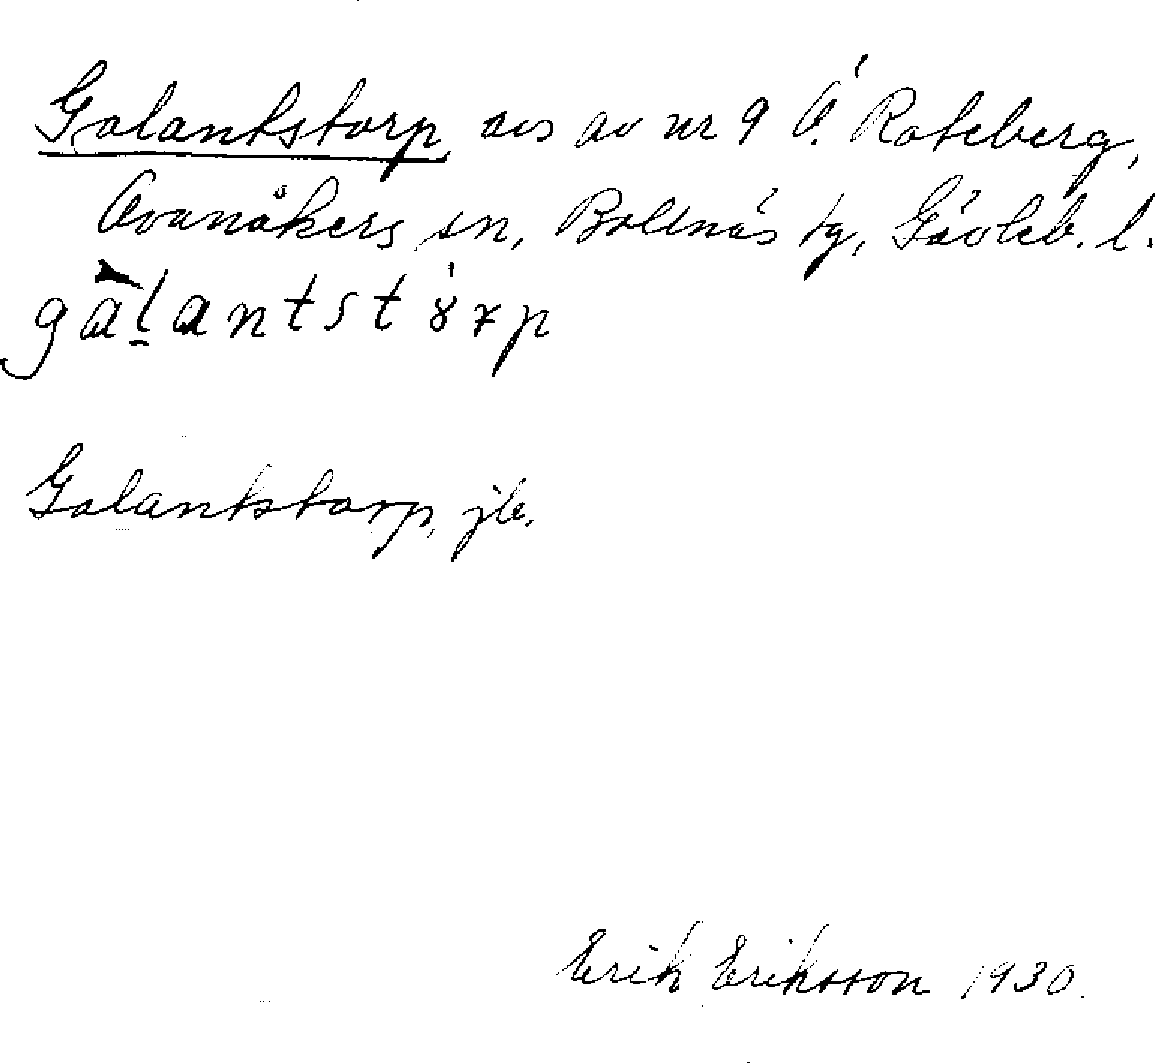 Galantstorp, avs av nr 9 Ö. Roteberg,
Ovanåkers sn, Bollnäs tg, Gävleb. l.
Galantstorp, jb.
Erik Eriksson 1930.